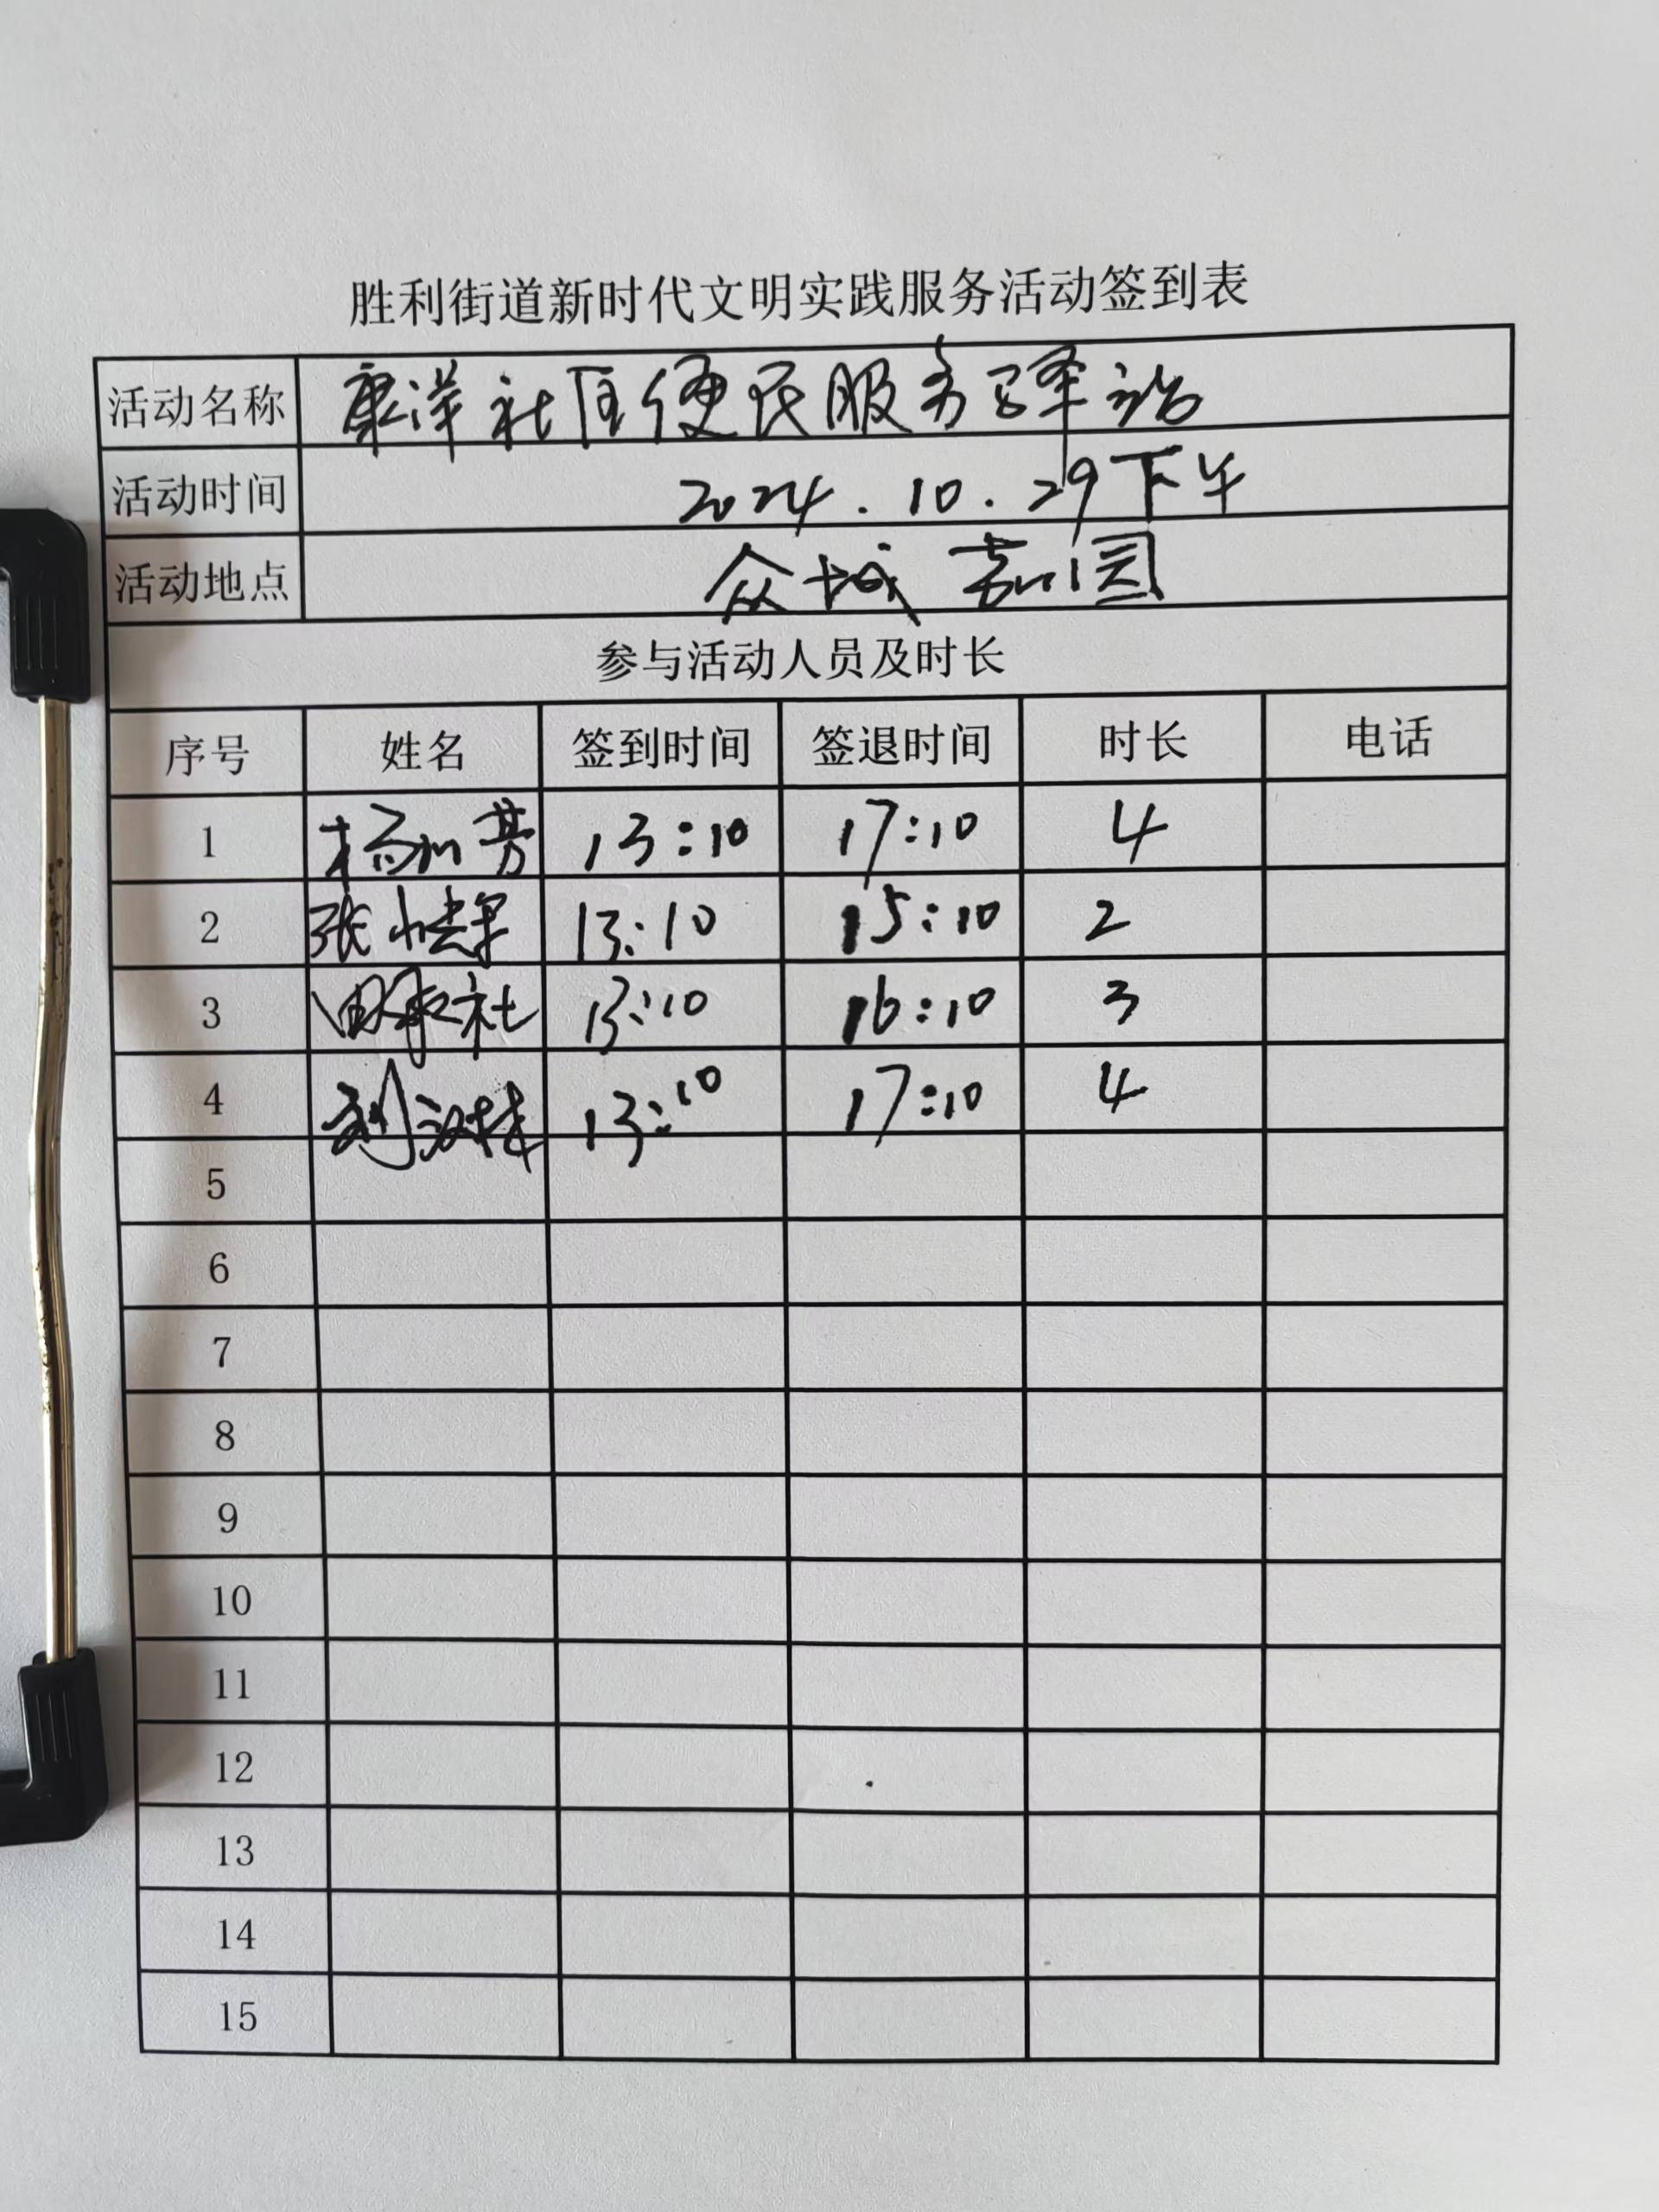 胜利街道新时代文明实践服务活动签到表
活动名称 康洋社区便民服务驿站
活动时间 2024.10.29下午
活动地点 众城嘉园
参与活动人员及时长
序号 姓名 签到时间 签退时间 时长 电话
1 杨 芳 13:10 17:10 4
2 张 13:10 15:10 2
3 田 社 13:10 16:10 3
4 刘汉林 13:10 17:10 4
5
6
7
8
9
10
11
12
13
14
15